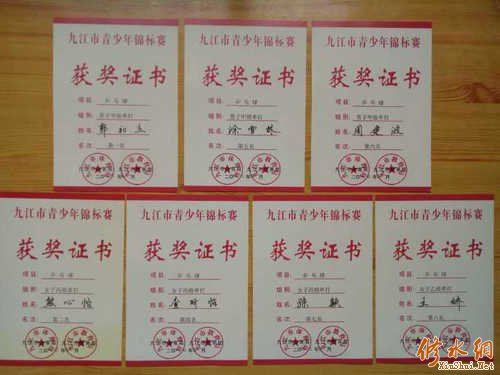 九江市青少年锦标赛
获奖证书
项目 乒乓球
组别 男子甲组单打
姓名
名次 第一名
九江市青少年锦标赛
获奖证书
项目 乒乓球
组别 男子甲组单打
姓名 徐雪林
名次 第五名
九江市青少年锦标赛
获奖证书
项目 乒乓球
组别 男子甲组单打
姓名 周建波
名次 第六名
九江市青少年锦标赛
获奖证书
项目 乒乓球
组别 女子丙组单打
姓名 熊心怡
名次 第二名
九江市青少年锦标赛
获奖证书
项目 乒乓球
组别 女子丙组单打
姓名
名次 第四名
九江市青少年锦标赛
获奖证书
项目 乒乓球
组别 女子丙组单打
姓名 陈敏
名次 第七名
九江市青少年锦标赛
获奖证书
项目 乒乓球
组别 女子乙组单打
姓名 王娇
名次 第八名
修水网
XiuShui.Net